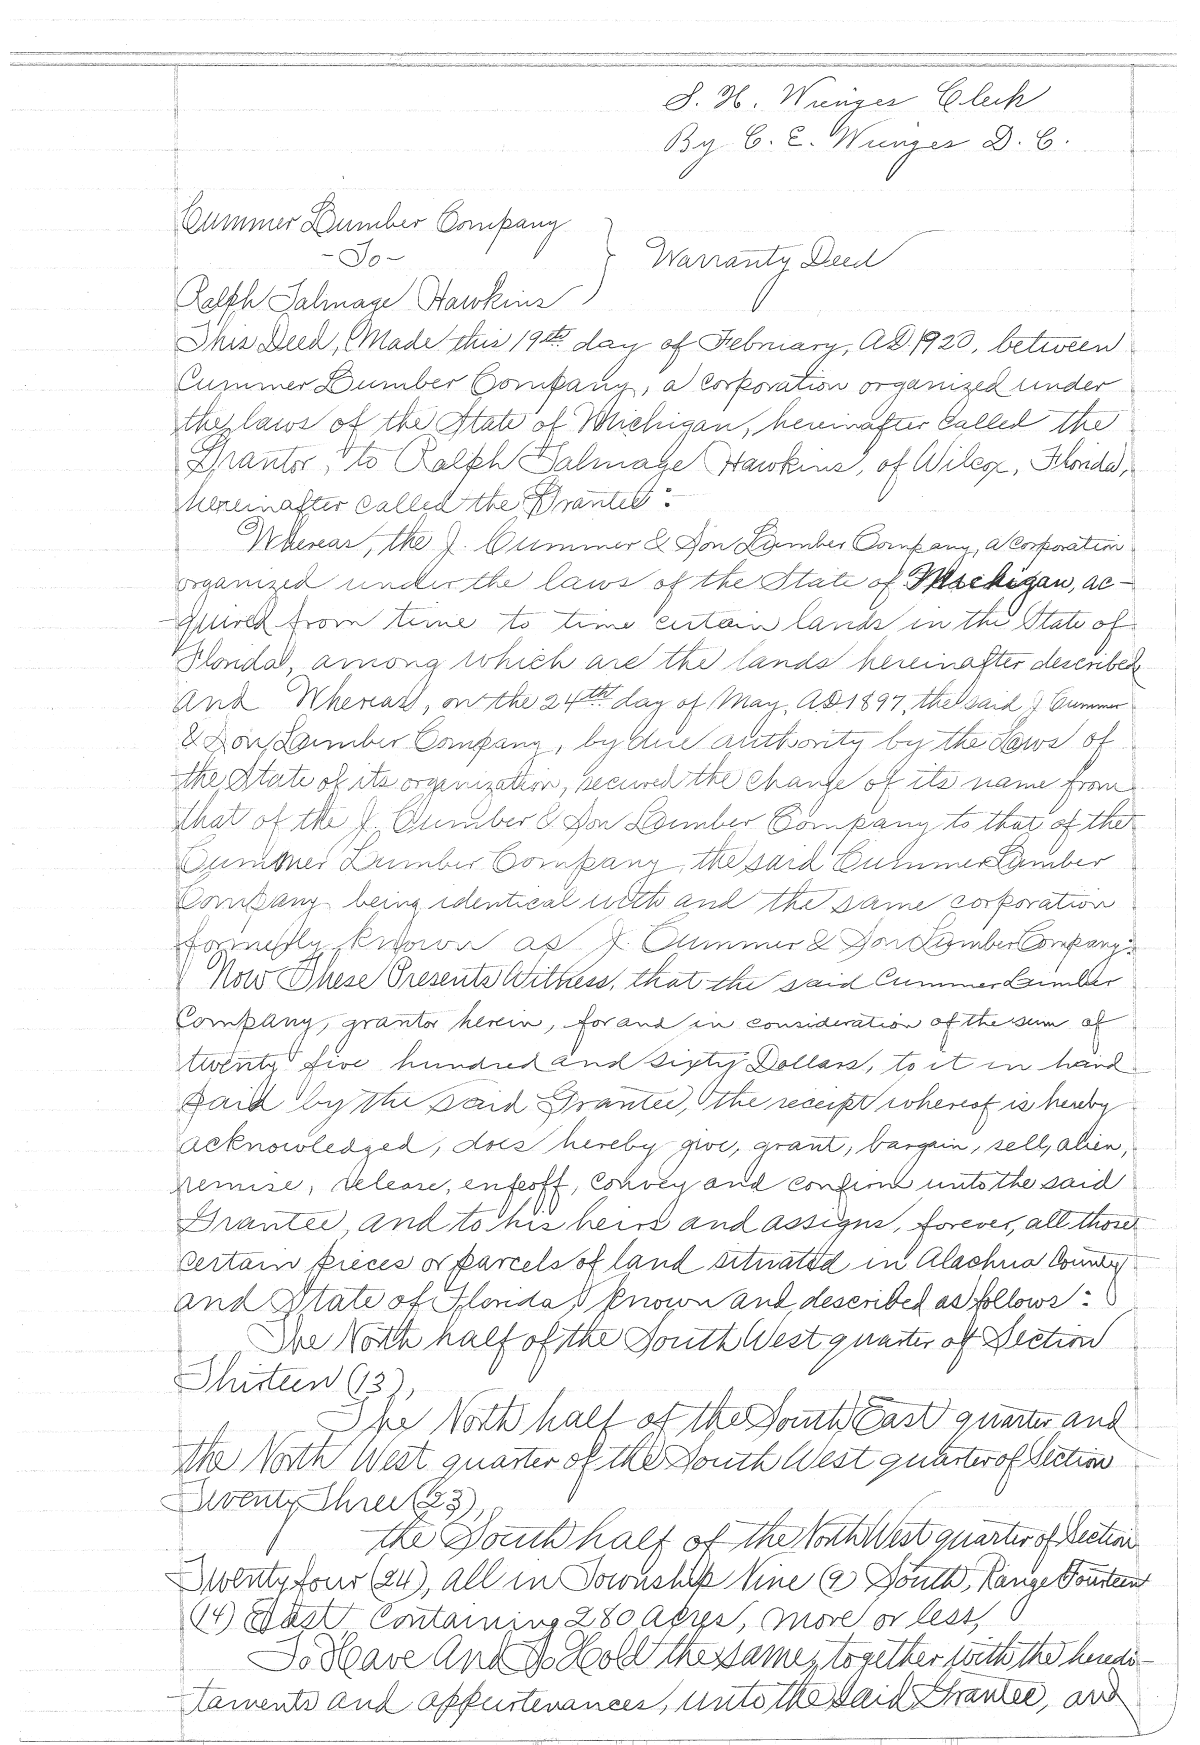 S. H. Wienges Clerk
By C. E. Wienges D. C.
Cummer Lumber Company
-To-
Warranty Deed
Ralph Talmage Hawkins
This Deed, Made this 19th day of February, A.D. 1920, between
Cummer Lumber Company, a corporation organized under
the laws of the State of Michigan, hereinafter called the
Grantor, to Ralph Talmage Hawkins, of Wilcox, Florida,
hereinafter called the Grantee:
Whereas, the J. Cummer & Son Lumber Company, a corporation
organized under the laws of the State of Michigan, ac-
quired from time to time certain lands in the State of
Florida, among which are the lands hereinafter described
and Whereas, on the 24th day of May, A.D. 1897, the said J Cummer
& Son Lumber Company, by due authority by the Laws of
the State of its organization, secured the change of its name from
that of the J. Cumber & Son Lumber Company to that of the
Cummer Lumber Company, the said Cummer Lumber
Company being identical with and the same corporation
formerly known as J. Cummer & Son Lumber Company:
Now These Presents Witness, that the said Cummer Lumber
Company, grantor herein, for and in consideration of the sum of
twenty five hundred and sixty Dollars, to it in hand
paid by the said Grantee, the receipt whereof is hereby
acknowledged, does hereby give, grant, bargain, sell, alien,
remise, release, enfeoff, convey and confirm unto the said
Grantee, and to his heirs and assigns, forever, all those
certain pieces or parcels of land situated in Alachua County
and State of Florida, known and described as follows:
The North half of the South West quarter of Section
Thirteen (13),
The North half of the South East quarter and
the North West quarter of the South West quarter of Section
Twenty Three (23),
the South half of the North West quarter of Section
Twenty four (24), all in Township Nine (9) South, Range Fourteen
(14) East, Containing 280 acres, more or less,
To Have And To Hold the same, together with the heredi-
taments and appurtenances, unto the said Grantee, and